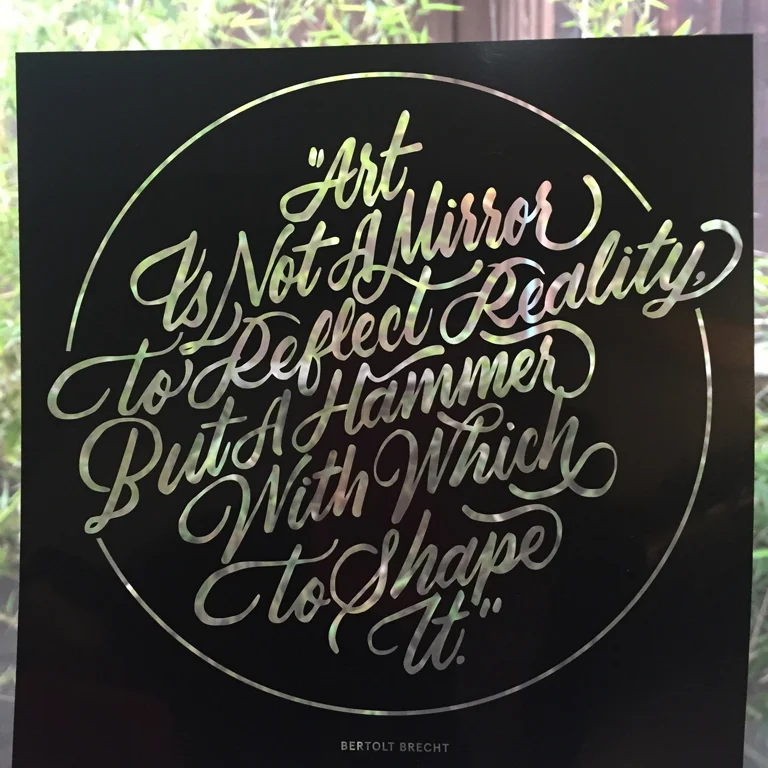 "Art
Is Not A Mirror
to Reflect Reality,
But A Hammer
With Which
to Shape
It."
BERTOLT BRECHT